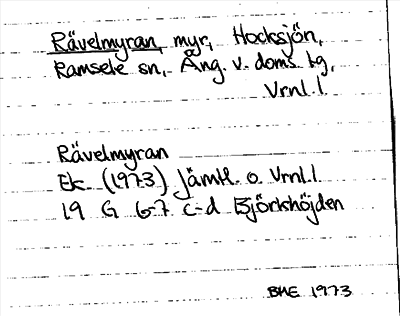 Rävelmyran, myr, Hocksjön,
Ramsele sn, Ång. v. doms. hg,
Vrnl. l.
Rävelmyran
Ek. (1973) Jämtl. o. Vrnl. l.
19 G 6-7 c-d Björkhöjden
BME 1973